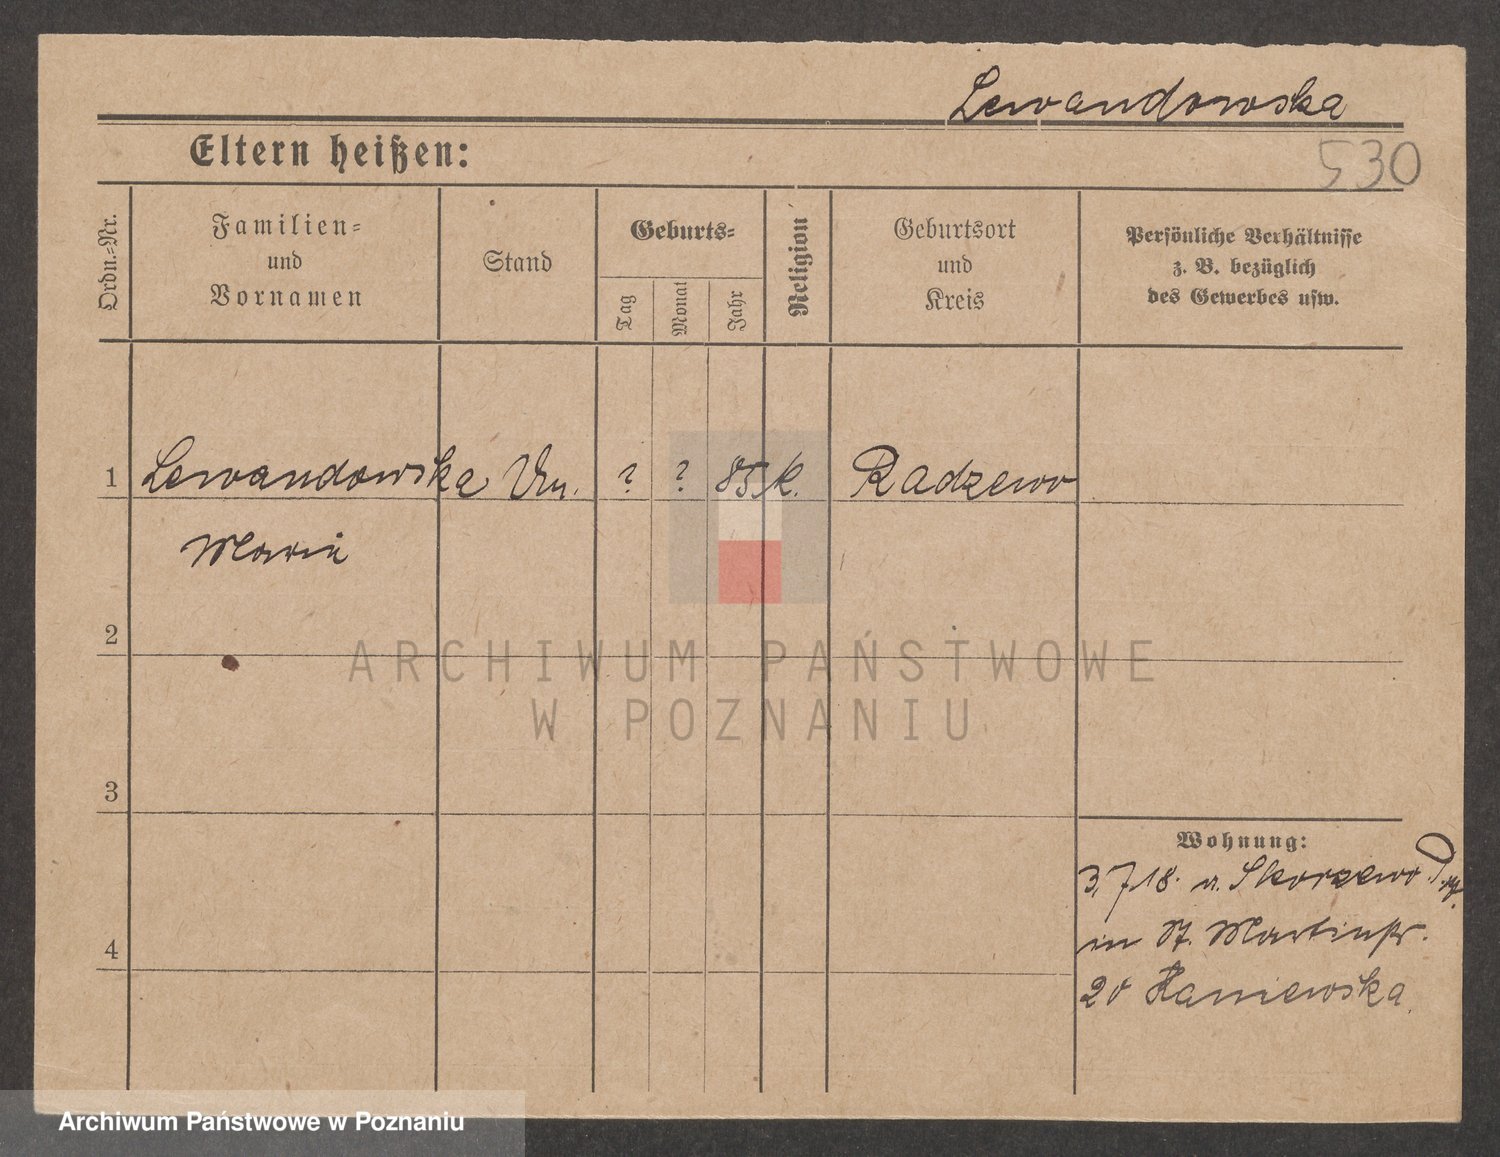 Lewandowska
530
Eltern heißen:
Ordn.=Nr.
Familien=
und
Vornamen
Stand
Geburts=
Tag
Monat
Jahr
Religion
Geburtsort
und
Kreis
Persönliche Verhältnisse
z. B. bezüglich
des Gewerbes usw.
1 Lewandowska ? ? 85 k. Radzewo
Marie
2
3
4
Wohnung:
3.7.18. v. Skorzewo
in St. Martinstr.
20 Kaniewska
ARCHIWUM PAŃSTWOWE
W POZNANIU
Archiwum Państwowe w Poznaniu